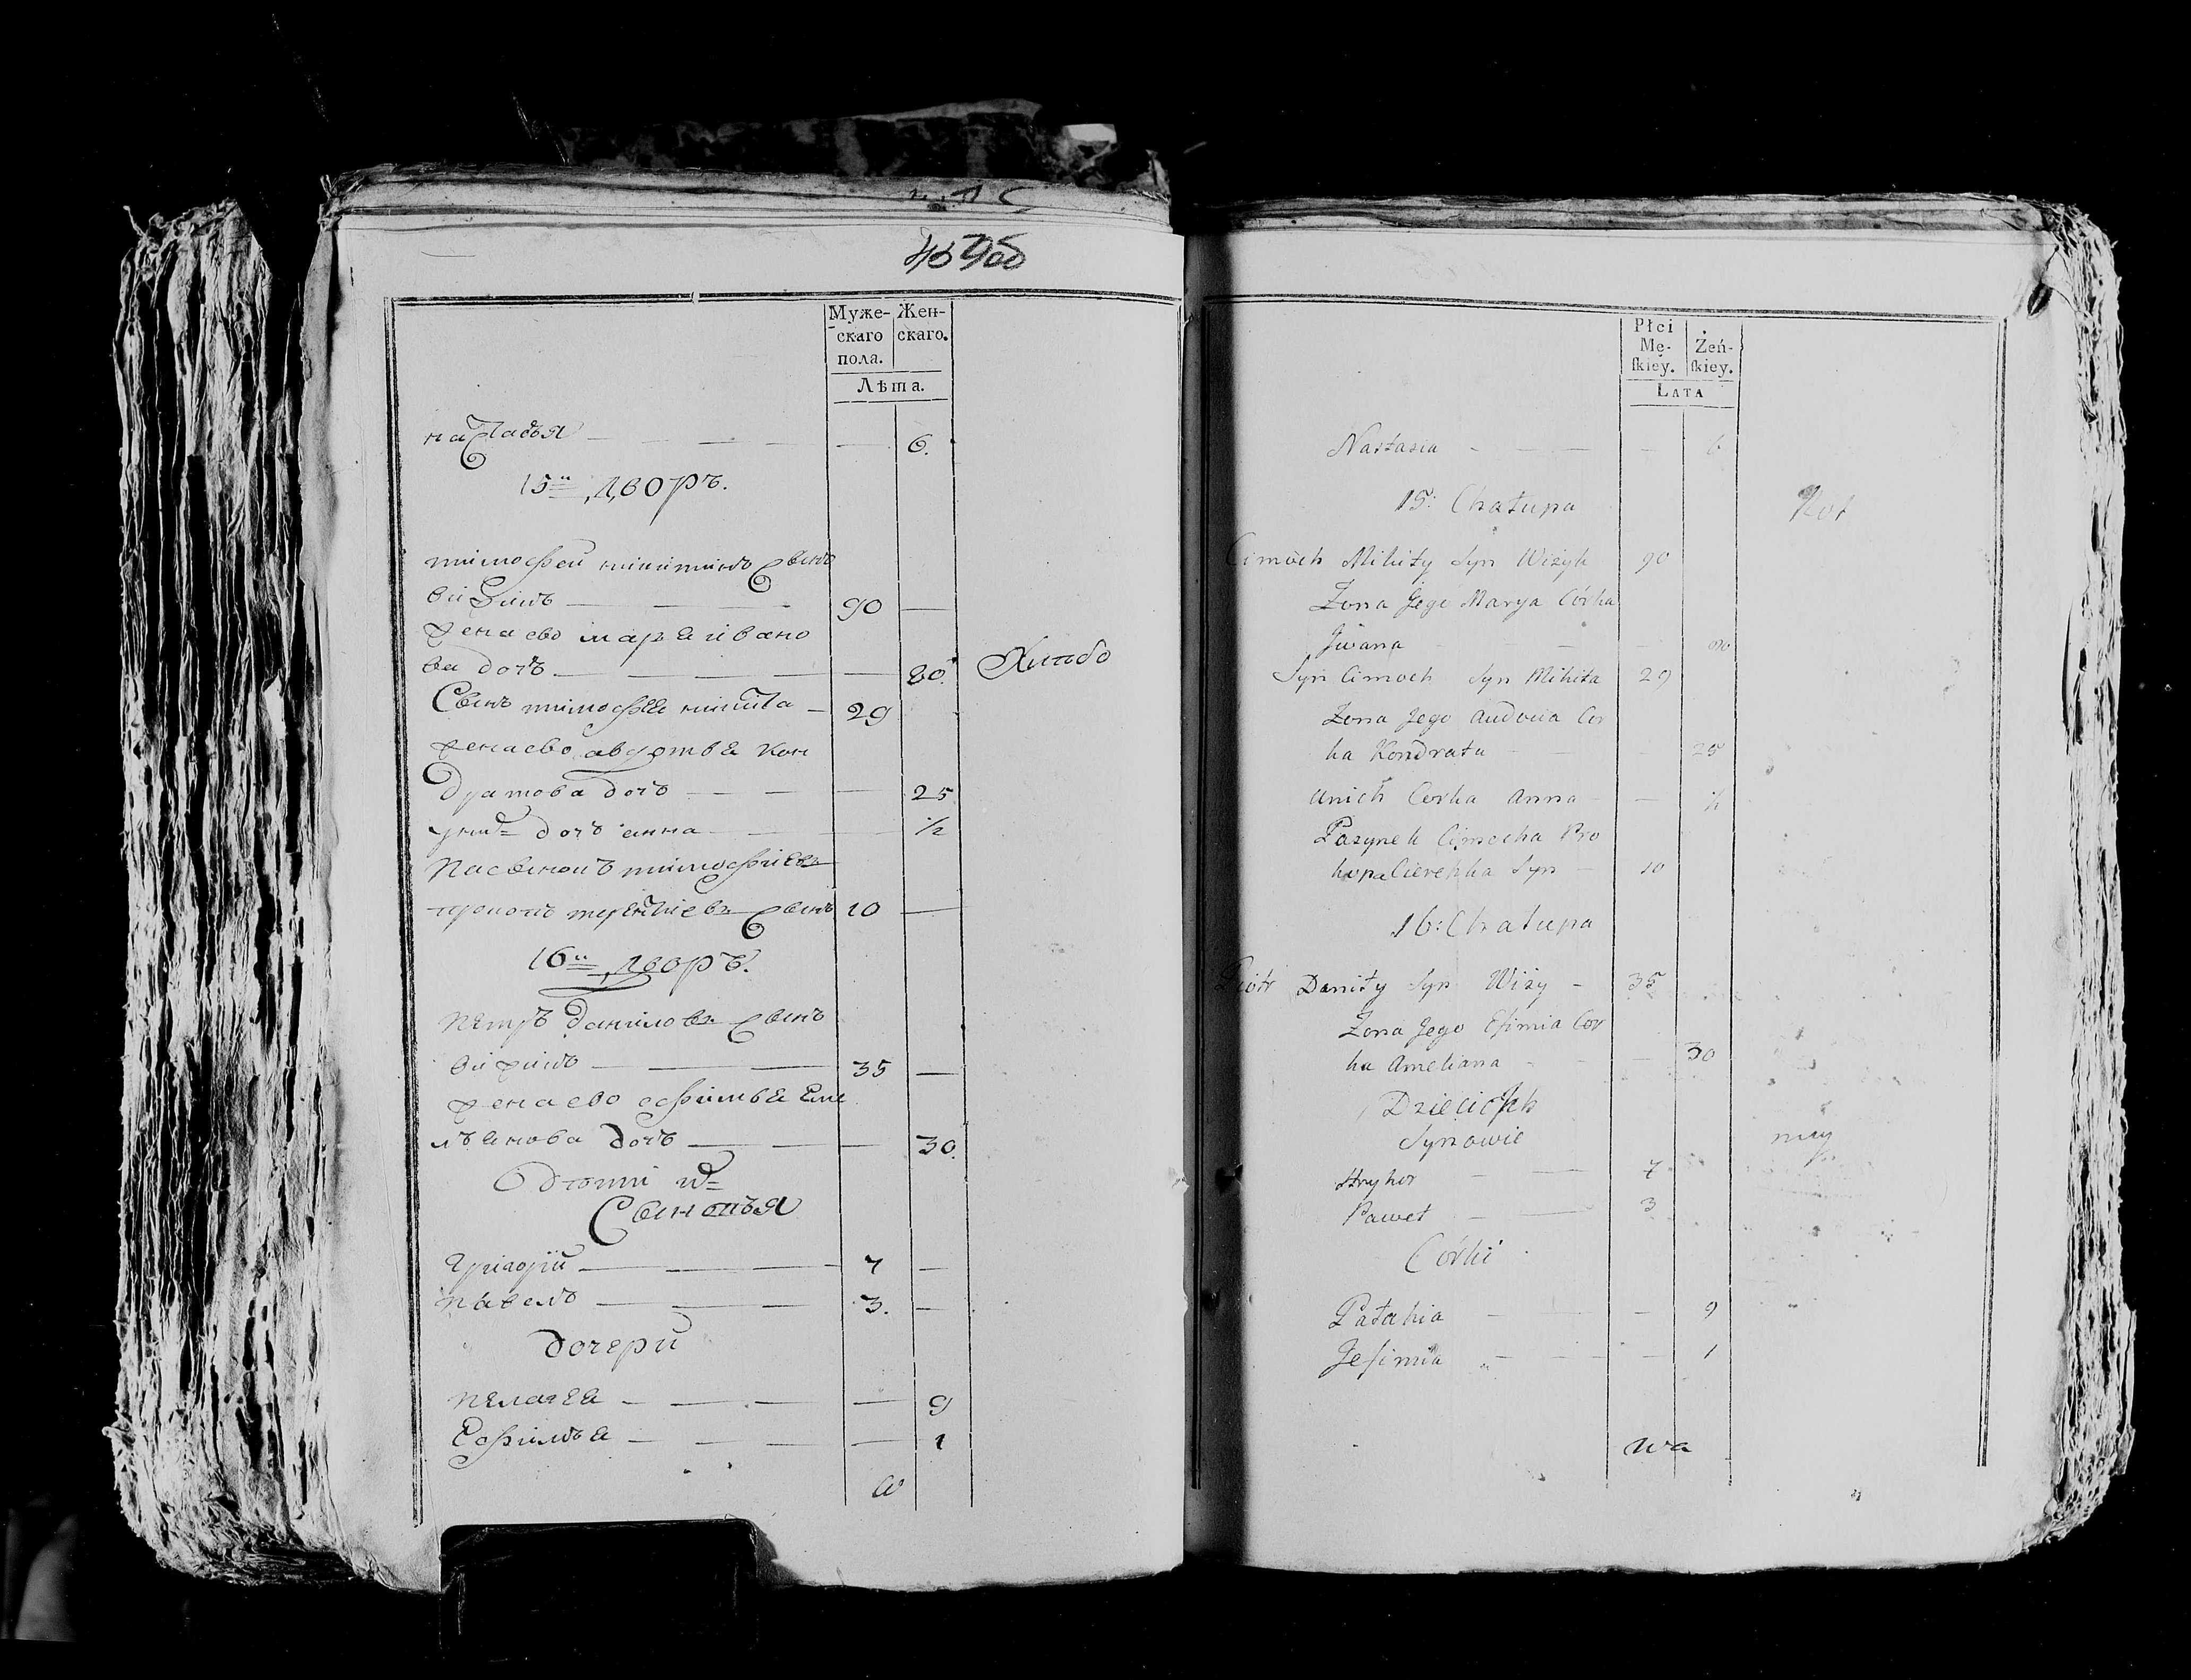 Муже-
скаго
пола.
Жен-
скаго.
Лѣта.
настасья — 6.
15й дворъ.
тимофей никитинъ сынъ
вижикъ — 90 —
жена ево марья ивано
ва дочь — 80.
Сынъ тимофея никита — 29
жена ево авдотья кон
дратова дочь — 25
у них дочь анна — ½
пасынокъ тимофеевъ
прокопъ терентиевъ сынъ 10 —
16й дворъ.
петръ даниловъ сынъ
вижикъ — 35 —
жена ево ефимья еме
льянова дочь — 30.
дети их
Сыновья
григорiй — 7 —
павелъ — 3. —
дочери
пелагея — 9
Ефимья — 1
Płci
Mę-
ſkiey.
Żeń-
ſkiey.
LATA
Nastazia — 6
15: Chałupa
Cimoch Mikity Syn Wiżyk 90
Żona Jego Marya Córka
Jwana — 80
Syn Cimoch Syn Mikita 29
Żona Jego Audocia Cor
ka Kondrata — 25
Unich Corka Anna — ½
Pasynek Cimocha Pro
kopa Cierekha Syn — 10
16: Chałupa
Piotr Daniły Syn Wiży — 35
Żona Jego Efimia Cor
ka Ameliana — 30
Dzieci Jch
Synowie
Hryhor — 7
Paweł — 3
Córki
Pałahia — 9
Jefimia — 1
wa